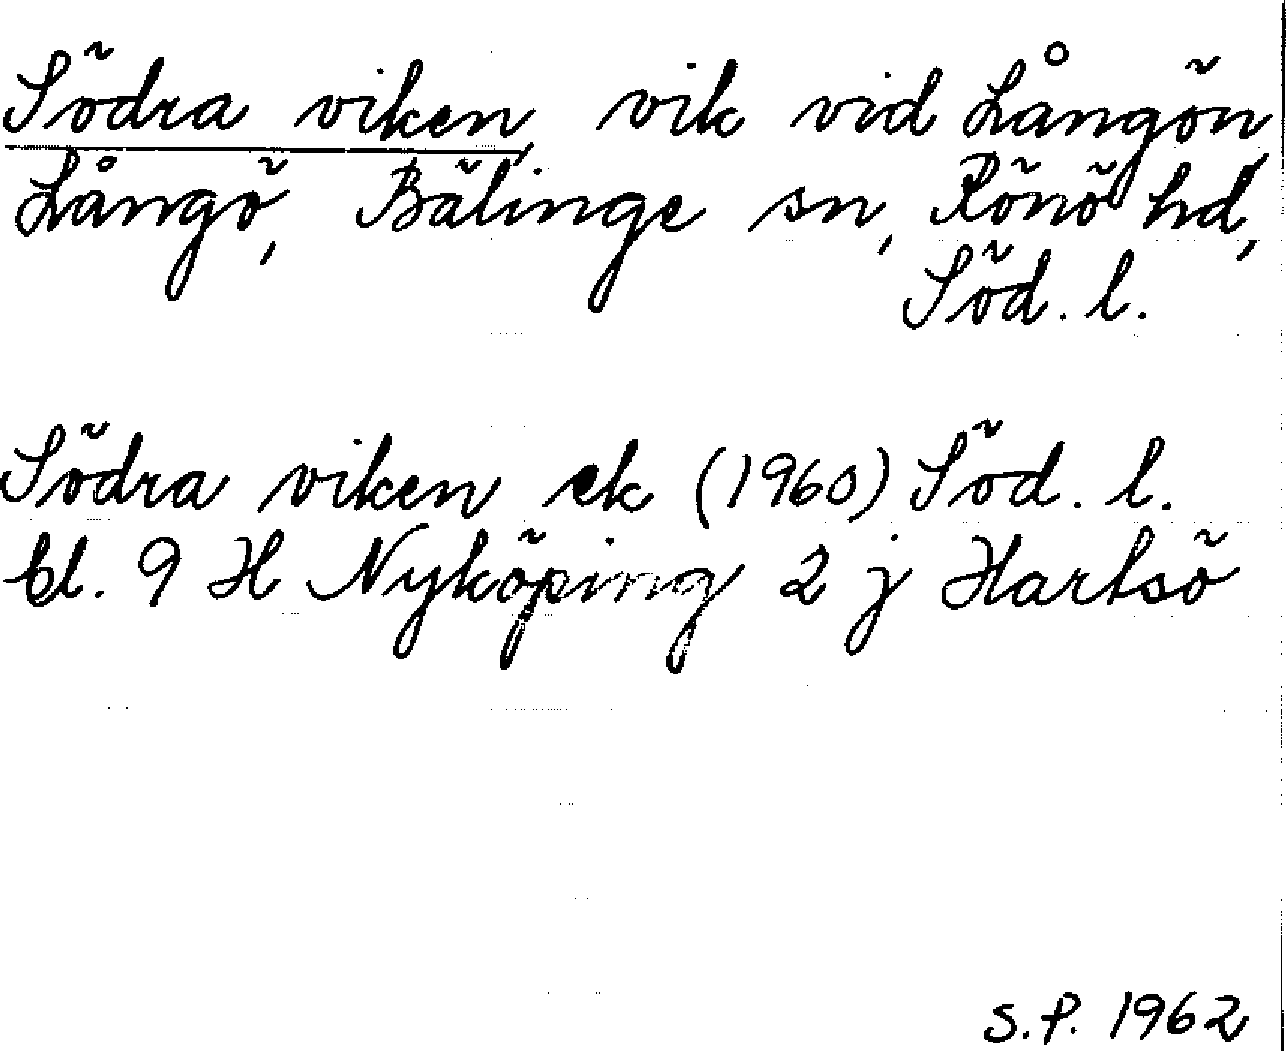 Södra viken, vik vid Långön,
Långö, Bälinge sn, Rönö hd,
Söd. l.
Södra viken ek (1960) Söd. l.
bl. 9 H Nyköping 2 j Hartsö
S.P. 1962